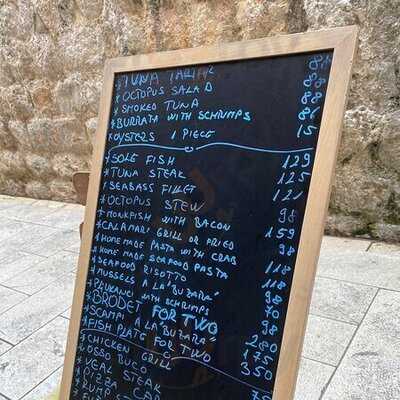 *TUNA TARTAR
*OCTOPUS SALAD 88
*SMOKED TUNA 88
*BURRATA WITH SCHRIMPS 86
*OYSTERS 1 PIECE 15
*SOLE FISH 129
*TUNA STEAK 125
*SEABASS FILLET 121
*OCTOPUS STEW 98
*MONKFISH WITH BACON 159
*CALAMARI GRILL OR FRIED 98
*HOME MADE PASTA WITH CRAB
*HOME MADE SEAFOOD PASTA 118
*SEAFOOD RISOTTO 118
*MUSSELS A LA "BUZARA" 98
*PLJUKANCI WITH SCHRIMPS
*BRODET FOR TWO
*SCAMPI A LA "BUZARA" 
*FISH PLATE FOR TWO 350
*CHICKEN GRILL
*OSSO BUCO 75
STEAK